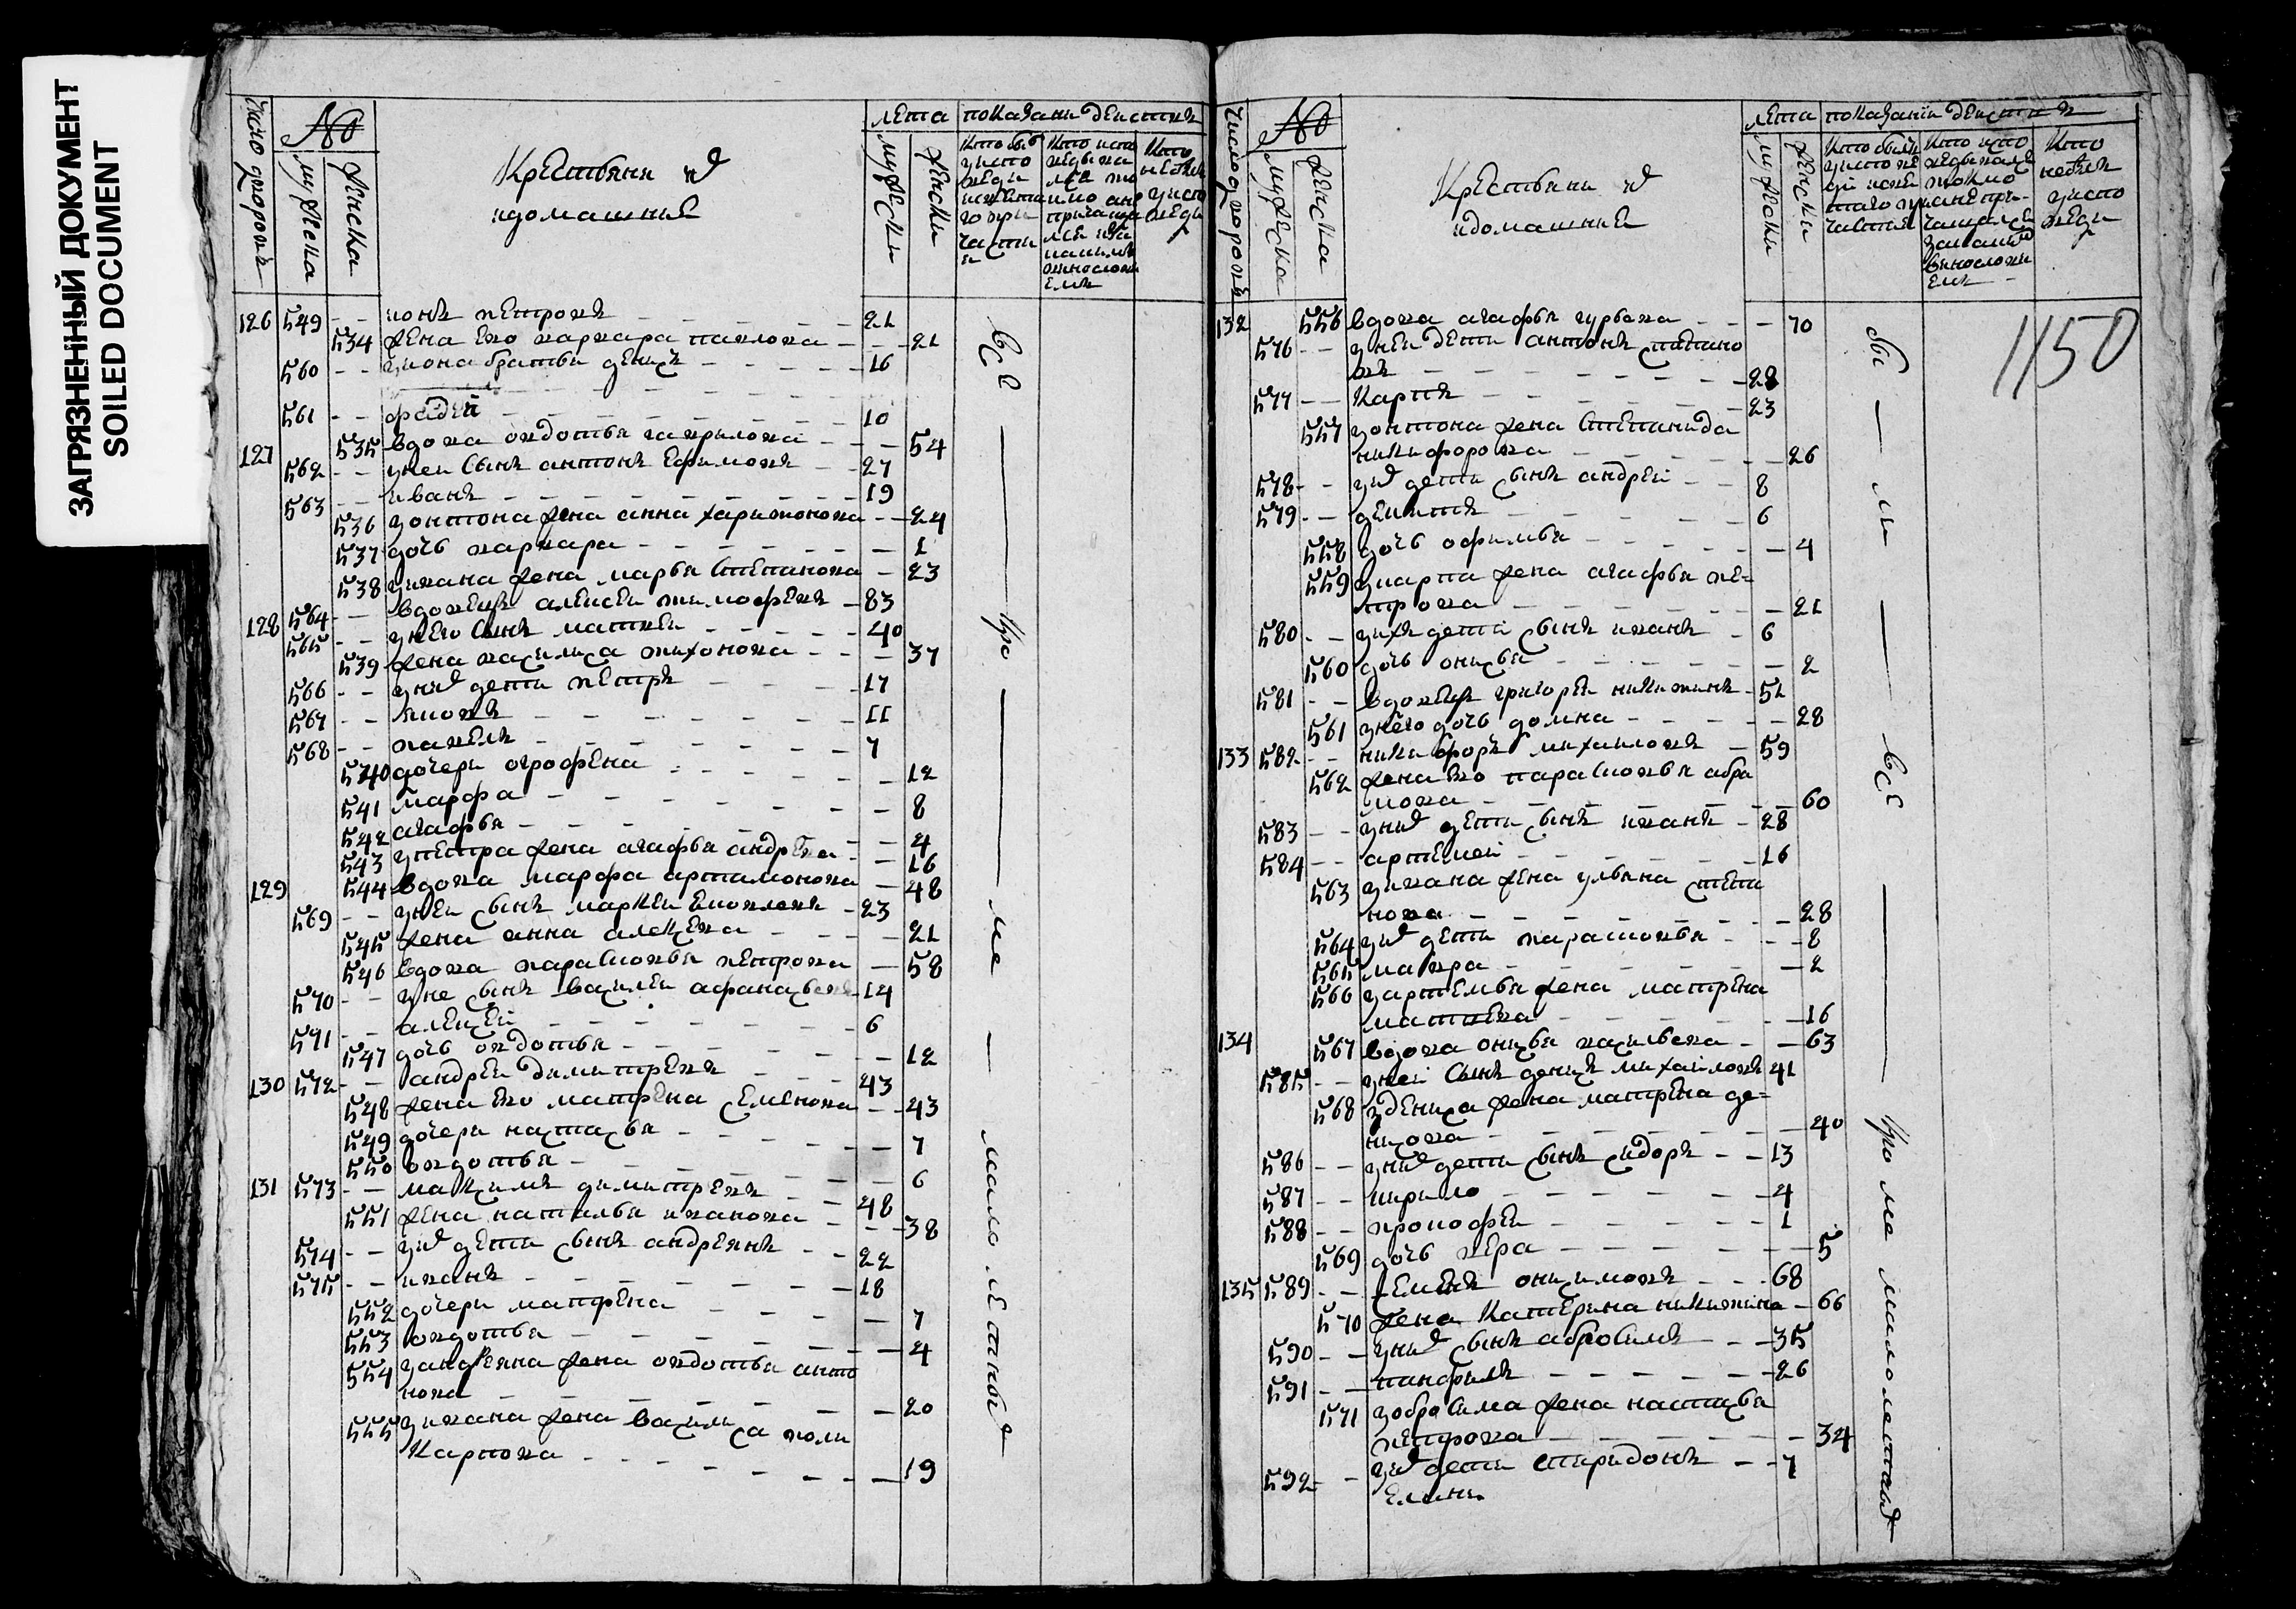 ЗАГРЯЗНЕННЫЙ ДОКУМЕНТ
SOILED DOCUMENT
Число дворовъ № мужеска женска Крестьяне и домашние лета мужески женски показани деиствия
126 549 – – ионъ петровъ – – 21
534 жена ево варвара павлова – – 21
560 – – у иона братья денисъ – – 16
561 – – фадей – – 10
127 535 вдова овдотья гаврилова – – 54
562 – – у неи сынъ антонъ ефимовъ – – 27
563 – – иванъ – – 19
536 у онтона жена анна харитонова – – 24
537 дочь варвара – – 1
538 у ивана жена марья степанова – 23
128 564 – – вдовецъ алексеи тимофеевъ – 83
565 – – у него сынъ матвеи – – 40
539 жена василиса тихонова – – 37
566 – – у них дети петръ – – 17
567 – – яковъ – – 11
568 – – павелъ – – 7
540 дочери огрофена – – 12
541 марфа – – 8
542 агафья – – 4
543 у петра жена агафья андреева – – 16
129 544 вдова марфа артамонова – 48
569 – – у неи сынъ маркеи яковлевъ – 23
545 жена анна алексева – – 21
546 вдова парасковья петрова – 58
570 – – у не сынъ василеи афанасьевъ – 14
591 – – алексей – – 6
547 дочь овдотья – – 12
130 572 – – андреи димитревъ – – 43
548 жена ево матрена семенова – – 43
549 дочери настасья – – 7
550 овдотья – – 6
131 573 – – максимъ димитревъ – – 48
551 жена наталья иванова – – 38
574 – – у их дети сынъ андреянъ – – 22
575 – – иванъ – – 18
552 дочери матрена – – 7
553 овдотья – – 4
554 у андреяна жена овдотья анто
нова – – 20
555 у ивана жена василиса поли
карпова – – 19
все кроме малолетных
Число дворовъ № мужеска женска Крестьяне и домашние лета мужески женски показании деиствия
1150
132 556 вдова агафья гурьева – – 70
576 – – у неи дети антонъ степано
въ – – 28
577 – – Карпъ – – 23
557 у онтона жена Степанида
никифорова – – 26
578 – – у их дети сынъ андреи – – 8
579 – – – – 6
558 дочь офимья – – 4
559 у карпа жена агафья пе=
трова – – 21
580 – – у ихъ дети сынъ иванъ – 6
560 дочь онисья – – 2
581 – – вдовецъ григореи никитинъ – 51
561 у него дочь домна – – 28
133 582 – – никифоръ михаиловъ – 59
562 жена ево парасковья абра
мова – – 60
583 – – у них дети сынъ иванъ – 28
584 – – артемеи – – 16
563 у ивана жена ульяна степа
нова – – 28
564 у их дети парасковья – – 8
565 мавра – – 2
566 у артемья жена матрена
матвеева – – 16
134 567 вдова онисья васильева – – 63
585 – – у неи сынъ денисъ михаиловъ 41
568 у дениса жена матрена де=
нисова – – 40
586 – – у них дети сынъ сидоръ – – 13
587 – – кирило – – 4
588 – – прокофеи – – 1
569 дочь вера – – 5
135 589 – – семенъ онисимовъ – – 68
570 жена Катерина никитина – 66
590 – – у них сынъ абросимъ – – 35
591 – – панфилъ – – 26
571 у обросима жена настасья
петрова – – 34
592 – – у их дети спиридонъ – – 7
бы ли все кроме малолетных